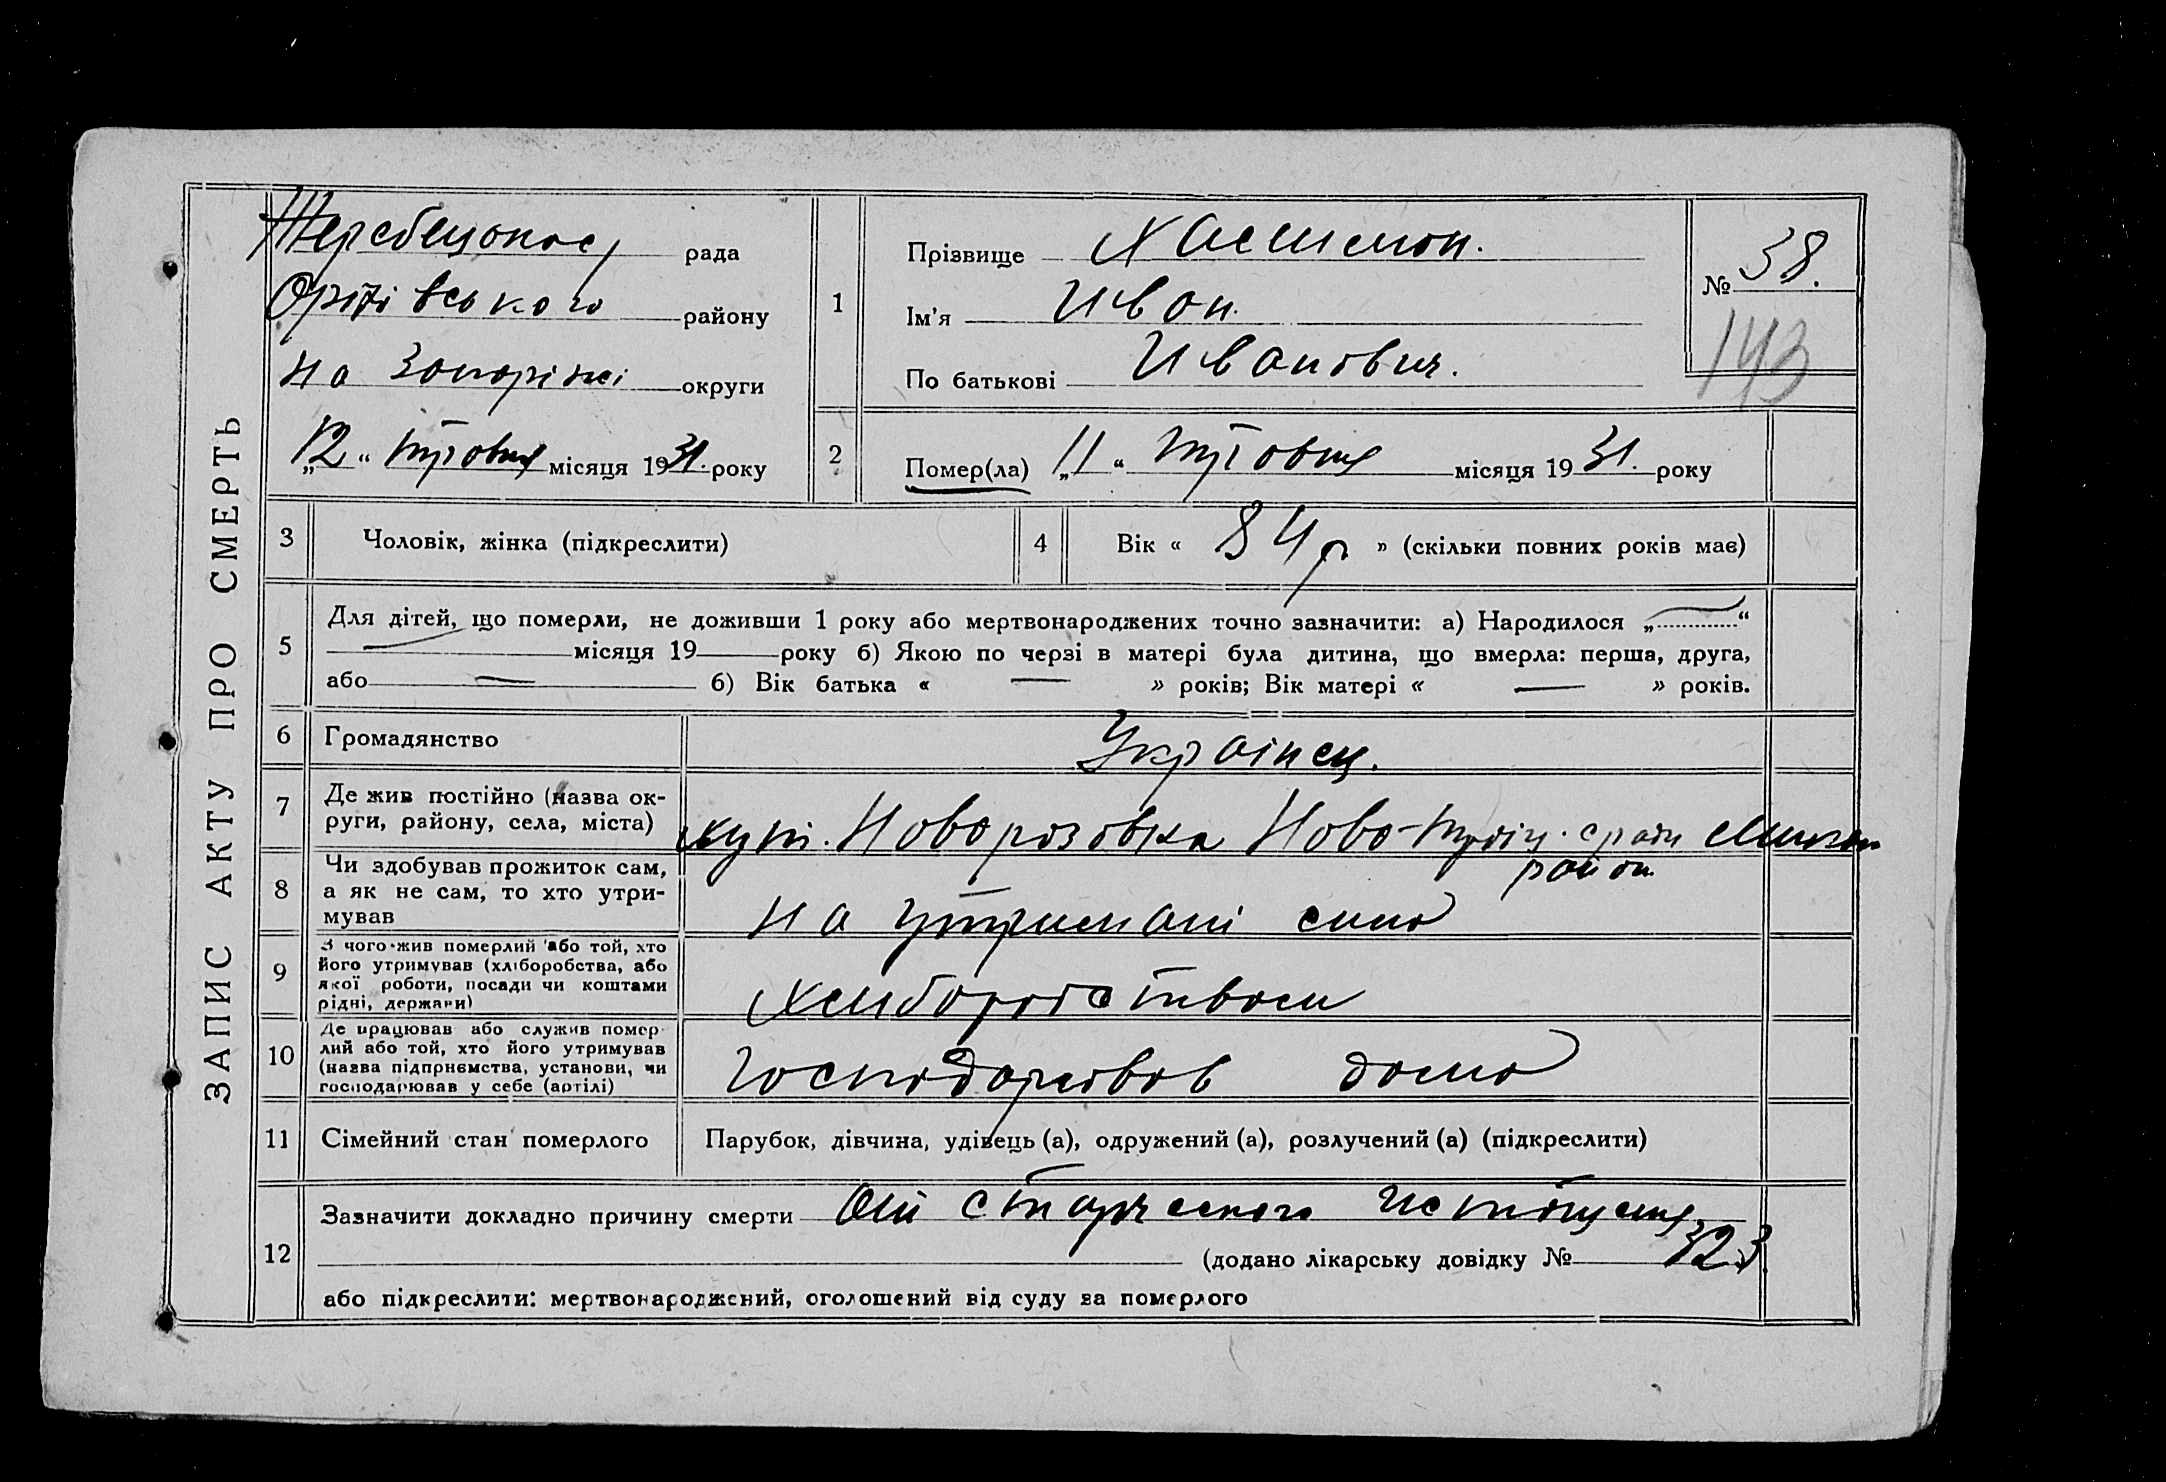 ЗАПИС АКТУ ПРО СМЕРТЬ
Жеребецької рада
Оріхівського району
на Запоріжжі округи
„12“ травня місяця 1931. року
1
Прізвище
Ім'я Иван.
По батькові Иванович.
№ 38.
143
2
Помер(ла) „11“ травня місяця 1931. року
3 Чоловік, жінка (підкреслити)
4 Вік « 84 р » (скільки повних років має)
5 Для дітей, що померли, не доживши 1 року або мертвонароджених точно зазначити: а) Народилося „ “
місяця 19 року б) Якою по черзі в матері була дитина, що вмерла: перша, друга,
або — б) Вік батька « — » років; Вік матері « — » років.
6 Громадянство Українец.
7 Де жив постійно (назва ок-
руги, району, села, міста)
хут. Новорозовка Ново- район
8 Чи здобував прожиток сам,
а як не сам, то хто утри-
мував
на утримані сина
9 З чого жив померлий або той, хто
його утримував (хліборобства, або
якої роботи, посади чи коштами
рідні, держави)
хлиборобством
10 Де працював або служив помер-
лий або той, хто його утримував
(назва підприємства, установи, чи
господарював у себе (артілі)
господарював дома
11 Сімейний стан померлого Парубок, дівчина, удівець (а), одружений (а), розлучений (а) (підкреслити)
12 Зазначити докладно причину смерти От старческого истощения
(додано лікарську довідку № 323
або підкреслити: мертвонароджений, оголошений від суду за померлого